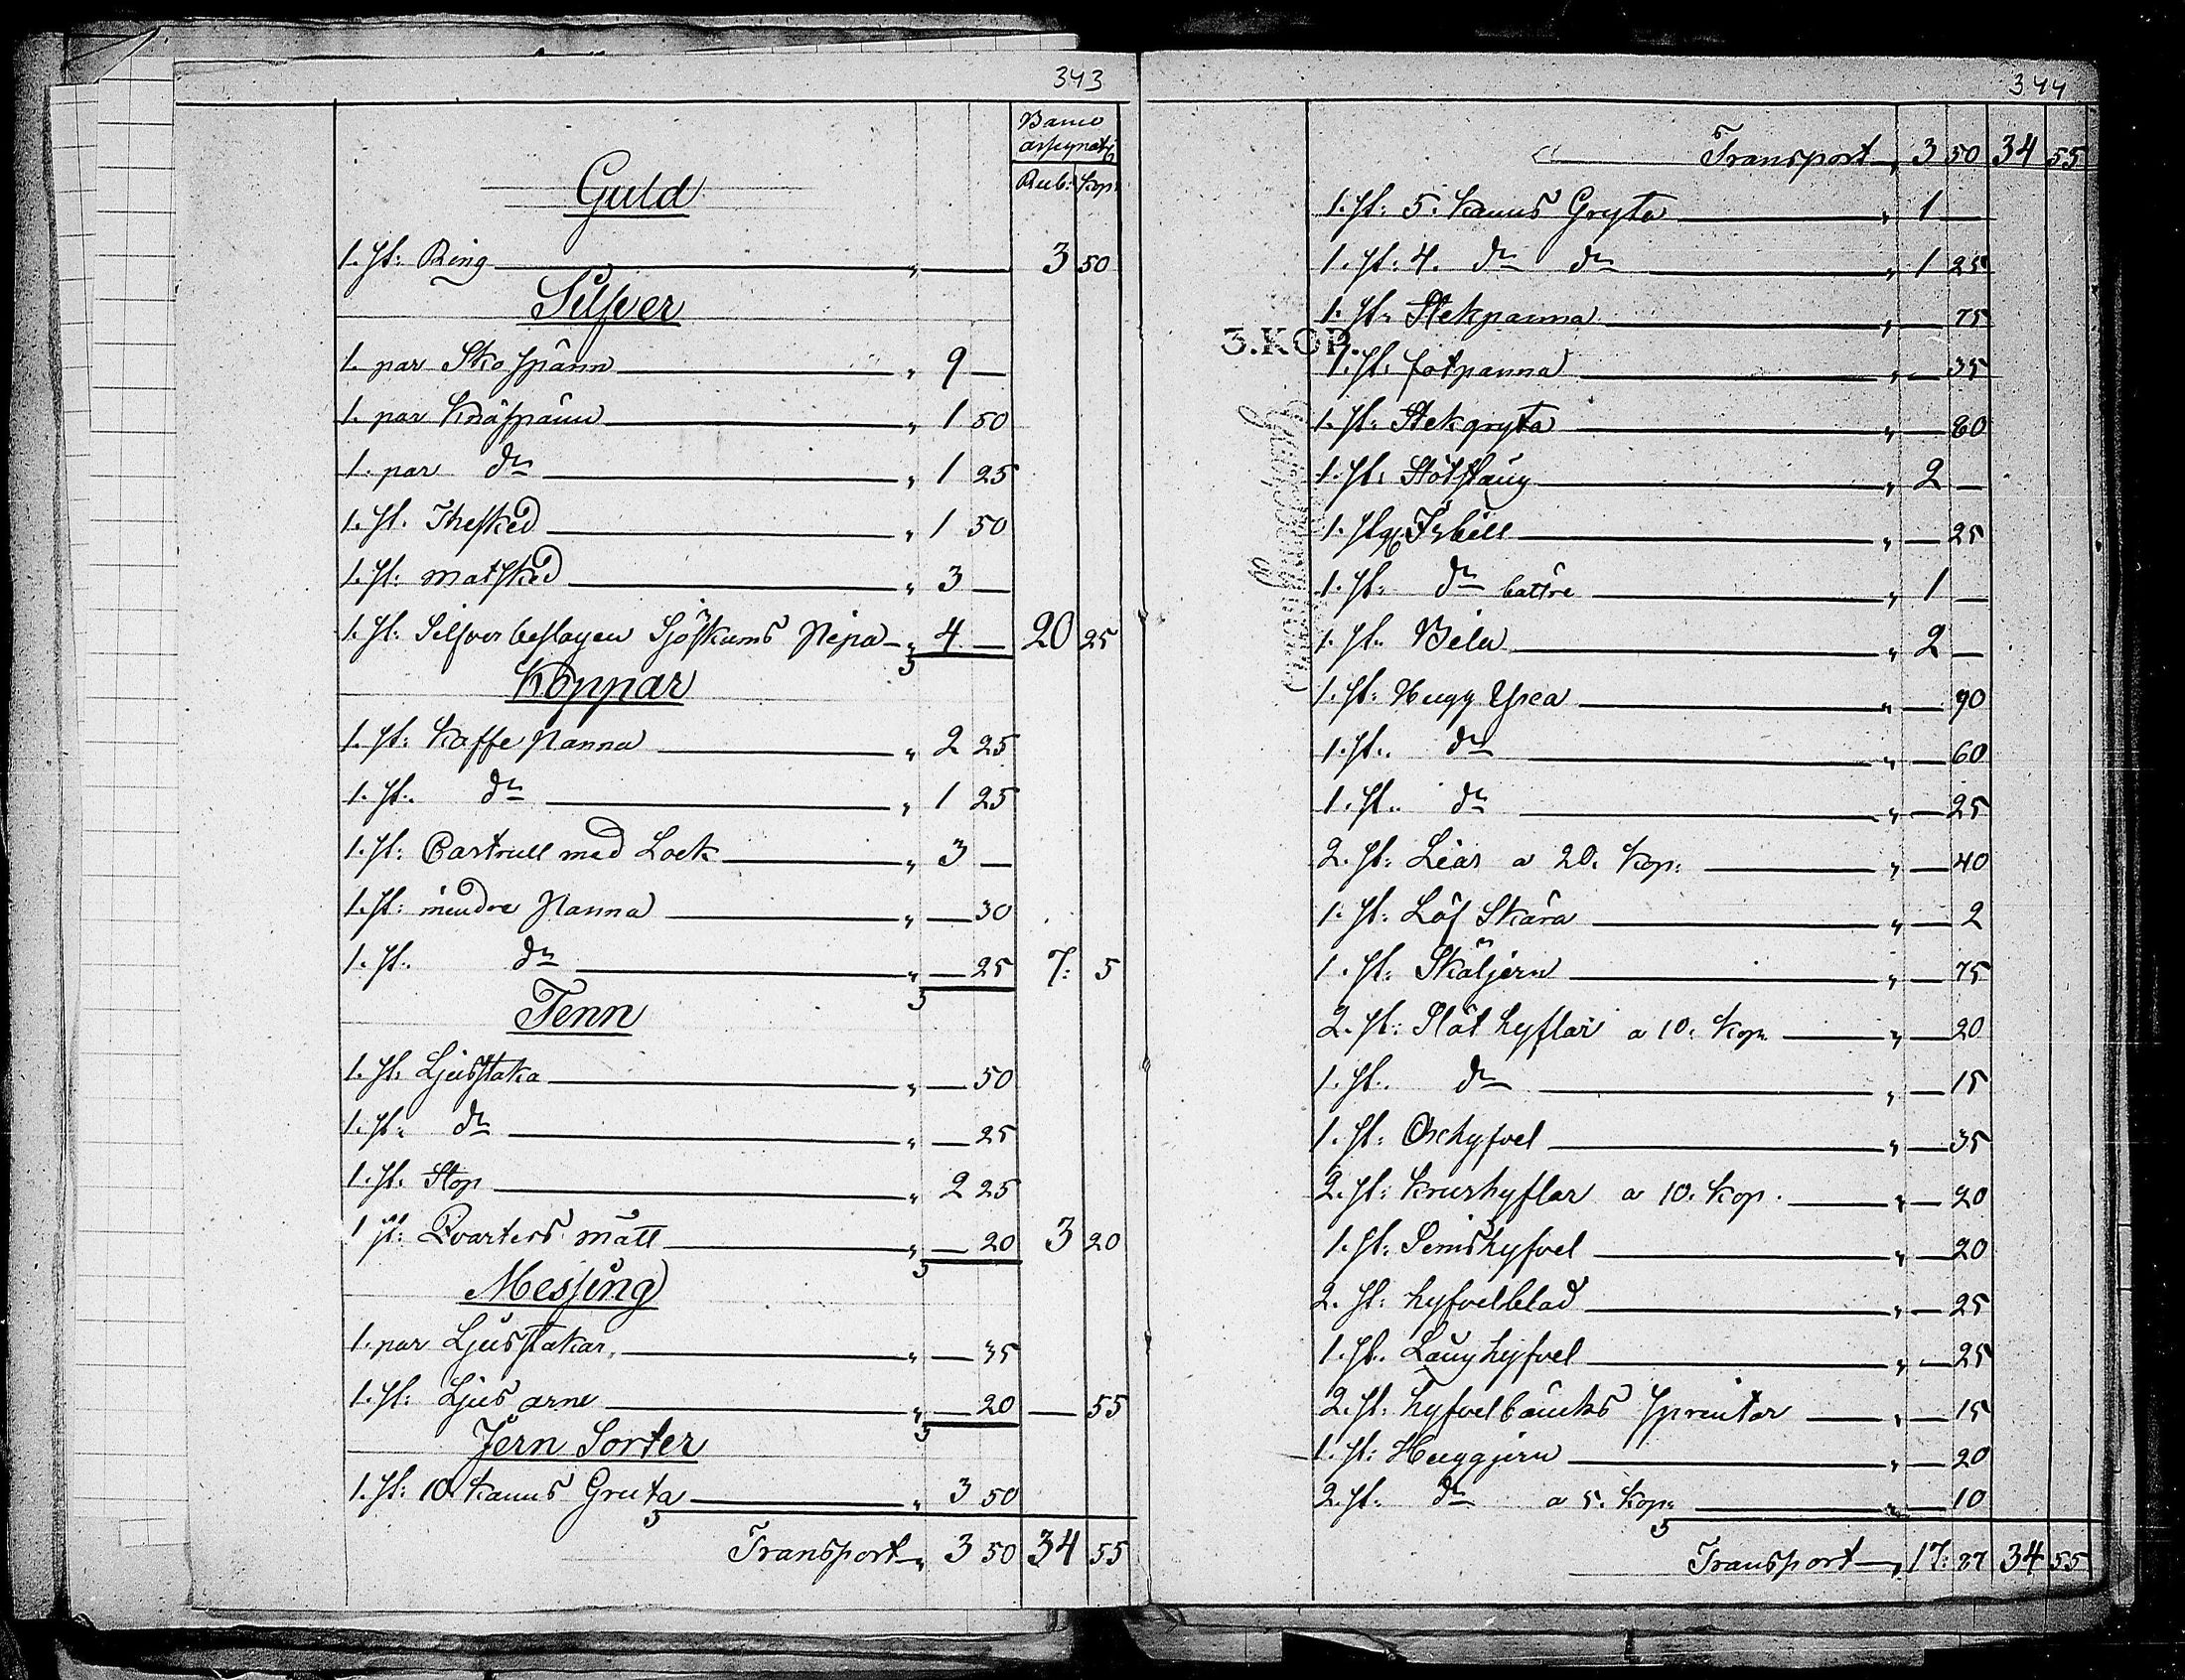 343
Banco
assignat:
Rub: Kop:
Guld
1. st: Ring — " — 3 50
Silfver
1. par Skospänn — " 9 —
1. par Knäspänn — " 1 50
1. par do — " 1 25
1. st. Thesked — " 1 50
1. st: matsked — " 3 —
1. st: Silfver beslagen Sjöskums Pipa — " 4 — 20 25
Koppar
1. st: Kaffe Panna — " 2 25
1. st. do — " 1 25
1. st: Castrull med Lock — " 3 —
1. st: mindre Panna — " — 30
1. st. do — " — 25 7: 5
Tenn
1. st. Ljusstaka — " — 50
1. st. do — " — 25
1. st. Stop — " 2 25
1 st: Qvarters mått — " — 20 3 20
Messing
1. par Ljusstakar, — " — 35
1. st: Ljus arne — " — 20 — 55
Jern Sorter
1. st: 10 Kanns Gruta — " 3 50
Transport — " 3 50 34 55
344
Transport — " 3 50 34 55
1. st: 5. Kanns Gryta — " 1 —
1. st: 4. do do — " 1 25
1. st. Stekpanna — " — 75
3.KOP.
1. st. fotpanna — " — 35
1. st: Stekgryta — " — 60
1. st: Stötstång — " 2 —
1. st Isbill — " — 25
1. st: do battre — " 1 —
1. st. Bila — " 2 —
1. st: Hugg Yxa — " — 90
1. st. do — " — 60
1. st. do — " — 25
2. st: Liar a 20. Kop: — " — 40
1. st: Löf Skära — " — 2
1. st: Skäljern — " — 75
2. st: Slät hyflar a 10. Kop — " — 20
1. st. do — " — 15
1. st: Oxhyfvel — " — 35
2. st: Krushyflar a 10. Kop. — " — 20
1. st: Simshyfvel — " — 20
2. st: hyfvelblad — " — 25
1. st. Långhyfvel — " — 25
2. st: hyfvelbäncks sprintar — " — 15
1. st: Huggjern — " — 20
2. st. do a 5. Kop: — " — 10
Transport — " 17: 87 34 55